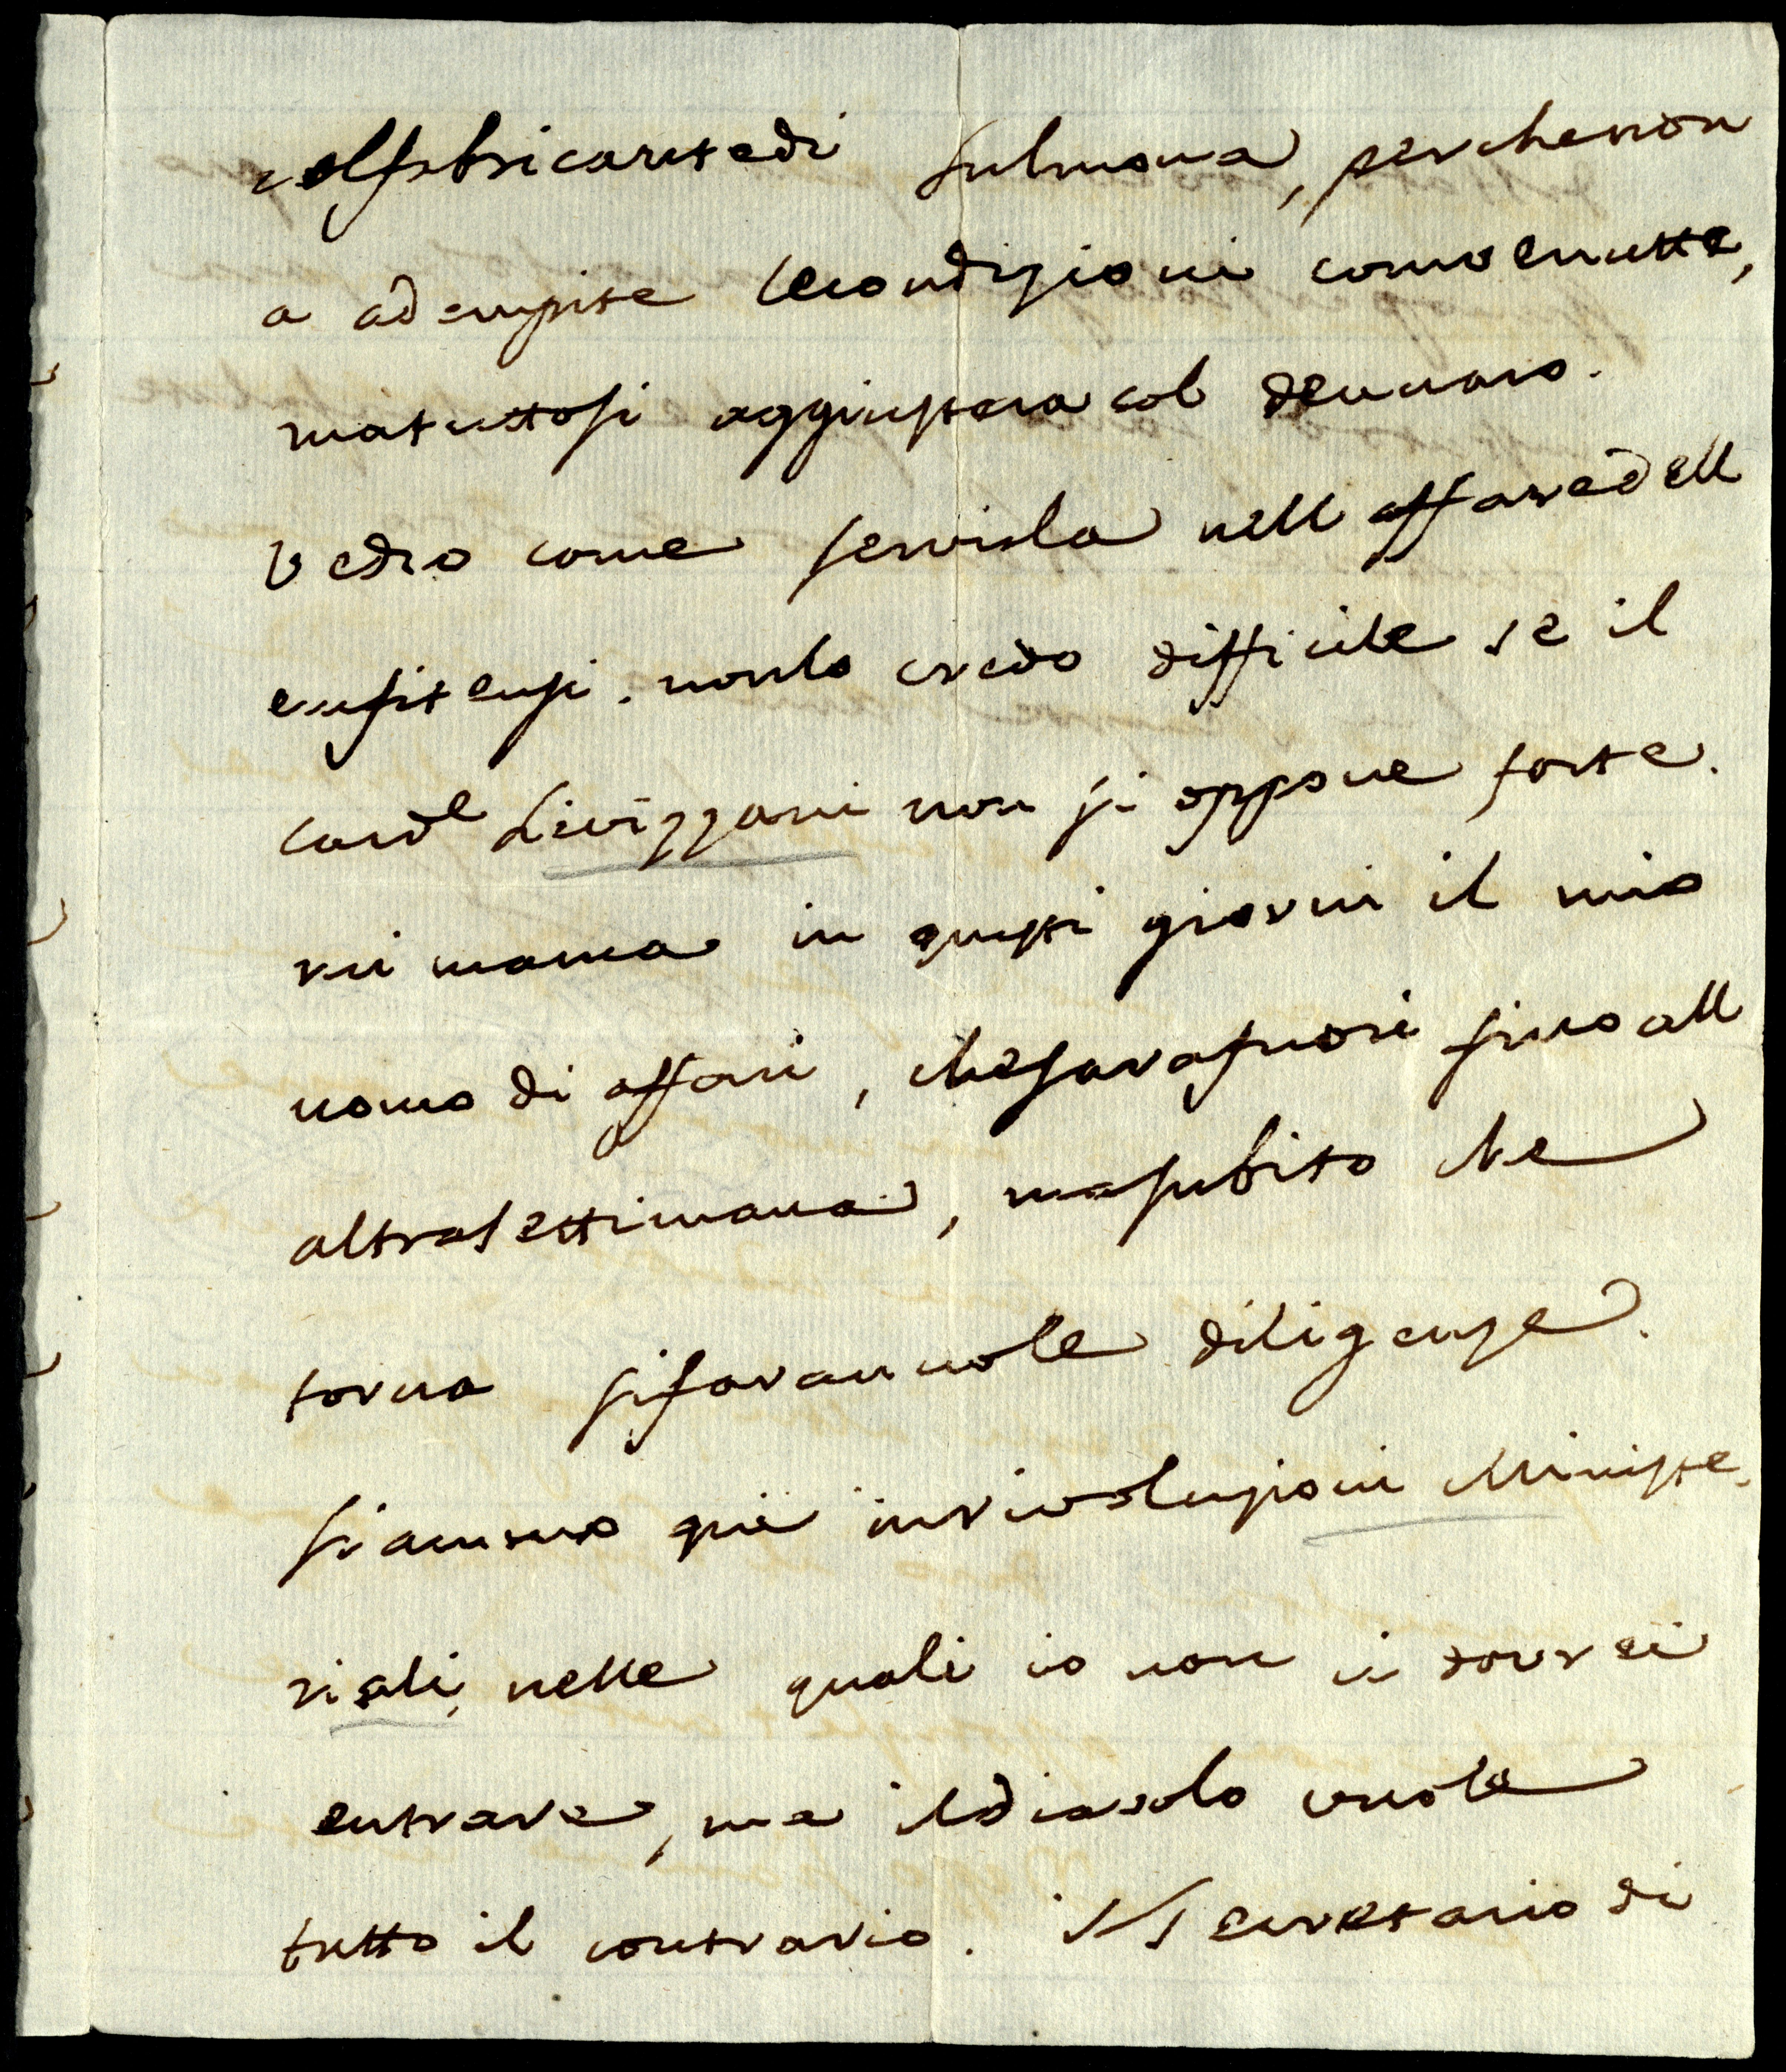 col fabricante di Sulmona, perche non
a adempite le condizioni convenutte,
ma tutto si aggiustera col dennaro.
vedro come servirla nell affare dell
enfitensi. non lo credo difficile se il
Card.e Livizzani non si oppone forte.
mi manca in questi giorni il mio
uomo di affari, che sara fuori sino all
altra settimana, ma subito che
torna si faranno le diligenze.
siammo qui in rivoluzioni Ministe
riali, nelle quali io non ci dovrei
entrare, ma il diavolo vuole
tutto il contrario. il Secretario di